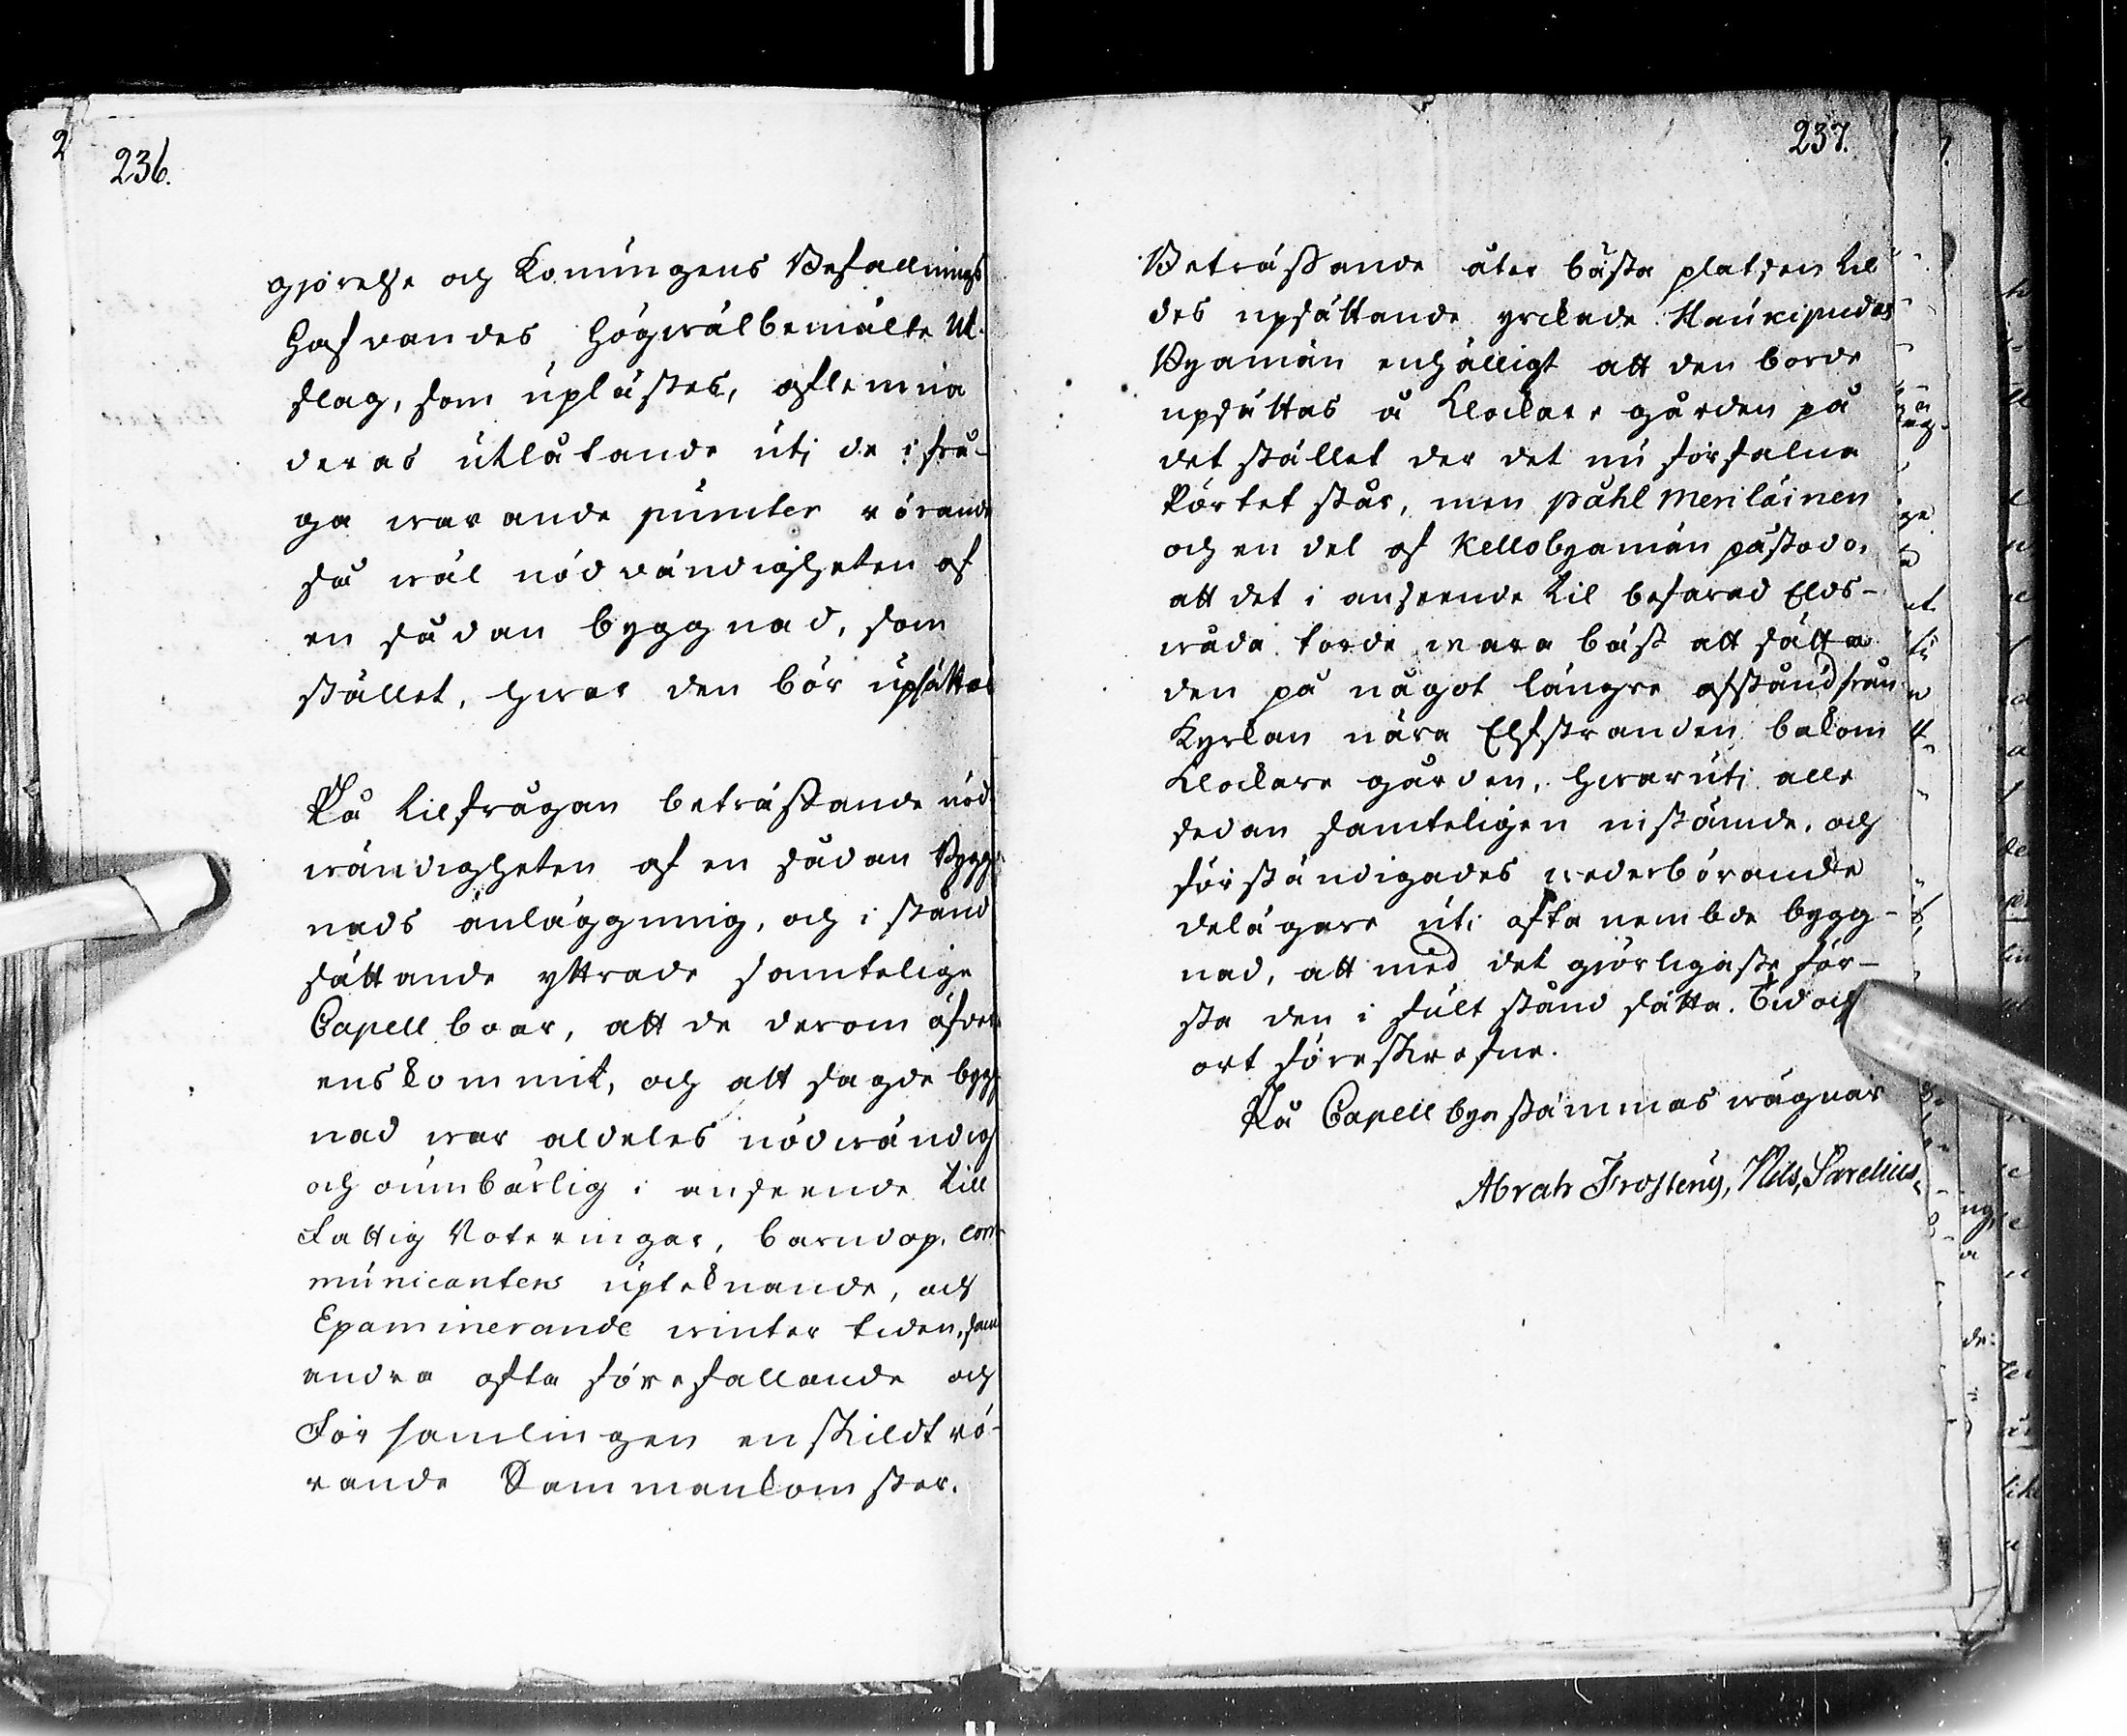 236.
giörelse och Konungens Befallnings
Hafvandes högwälbemälte Ut-
slag, som uplästes, aflemna
deras utlåtande uti de i frå-
ga warande puncter rörande
så wäl nödvändigheten af
en sådan byggnad, som
stället, hwar den bör upsättas
På tilfrågan beträffande nöd-
wändigheten af en sådan Bygg-
nads anläggning, och i stånd
sättande yttrade samtelige
Capellboar, att de derom öfver
enskommit, och att sagde bygg-
nad war aldeles nödwändig
och oumbärlig i anseende till
Fattig Roteringar, barndop, com-
municanters upteknande, och
Examinerande winter tiden, samt
andra ofta förefallande och
Församlingen enskildt rö-
rande Sammankomster.
237.
Beträffande åter bästa platsen til
des upsättande yrckade Haukipudas
Byamän enhälligt att den borde
upsättas å Klockare gården på
det stället der det nu förfalna
Pörtet står, men Påhl Meriläinen
och en del af Kellobyamän påstodo,
att det i anseende til befarad Elds-
wåda torde wara bäst att sätta
den på något längre afstånd från
Kyrkan nära Elfstranden bakom
Klockare gården, hwaruti alle
sedan samteligen instämde, och
förständigades wederbörande
delägare uti ofta nembde bygg-
nad, att med det giörligaste för-
sta den i fult stånd sätta. Tid och
ort föreskrefne.
På Capellbyastämmas wägnar
Abrah Frosterus, Nils Sarelius,